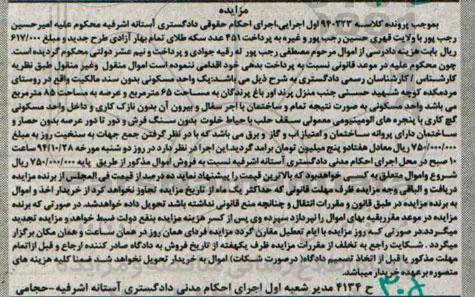 مزایده
بموجب پرونده کلاسه ۹۴۰۳۲۳ اول اجرایی، اجرای احکام حقوقی دادگستری آستانه اشرفیه محکوم علیه امیرحسین
رجب پور با ولایت قهری حسین رجب پور و غیره به پرداخت ۴۵۱ عدد سکه طلای تمام بهار آزادی طرح جدید و مبلغ ۶۱۷/۰۰۰
ریال بابت هزینه دادرسی از اموال مرحوم مصطفی رجب پور له رقیه جوادی و پرداخت و نیم عشر دولتی محکوم گردیده است.
چون محکوم علیه در موعد قانونی نسبت به پرداخت بدهی خود اقدامی ننموده است اموال منقول وغیر منقول طبق نظریه
کارشناس / کارشناسان رسمی دادگستری به شرح ذیل می باشد: یک واحد مسکونی بدون سند مالکیت واقع در روستای
مردمکده کوچه شهید حسنی جنب منزل پرند اور باغ پرندگان به مساحت ۶۵ مترمربع و عرصه به مساحت ۸۵ مترمربع
می باشد واحد مسکونی به صورت نتیجه تمام و ساختمان با اجر سفال و بیرون آن بدون نازک کاری و داخل واحد مسکونی
گچ کاری با پنجره های الومینیومی معمولی سقف حلب با حیاط خلوت بدون سنگ فرش و دور تا دور عرصه بدون حصار و
ساختمان دارای پروانه ساختمان و امتیاز آب و گاز و برق می باشد که با در نظر گرفتن جمع جهات به سنخیت روز به مبلغ
۷۵۰/۰۰۰/۰۰۰ ریال معادل هفتادو پنج میلیون تومان برآمد گردید. این اجرا در نظر دارد در روز دو شنبه مورخه ۹۴/۱۰/۲۸ ساعت
۱۰ صبح در محل اجرای احکام مدنی دادگستری آستانه اشرفیه نسبت به فروش اموال مذکور از طریق پایه ۷۵۰/۰۰۰/۰۰۰ ریال
شروع واموال متعلق به کسی خواهدبود که بالاترین قیمت را پیشنهاد نماید ده درصد از قیمت فی المجلس از برنده مزایده
دریافت و الباقی وجه مزایده ظرف مهلت قانونی که حداکثر یک ماه از تاریخ مزایده تجاوز نخواهد کرد از خریدار اخذ و اموال
به برنده مزایده در طبق قانون و مقررات انتقال و چنانچه منع قانونی نداشته باشد تحویل داده خواهدشد. در صورتی که برنده
مزایده در موعد مقرر بقیه بهای اموال را نپردازد سپرده وی پس از کسر هزینه مزایده بنفع دولت ضبط خواهد و مزایده تجدید
میگردد. در صورتی که روز مزایده با ایام تعطیل مقارن گردد مزایده فردای همان روز در همان ساعت و همان مکان برگزار
میگردد. شکایت راجع به تخلف از مقررات مزایده ظرف یکهفته از تاریخ فروش به دادگاه صادر کننده ارجاع و قبل از اتمام
مهلت مذکور یا قبل از اتخاذ تصمیم دادگاه (درصورت شکات) اموال به خریدار تحویل نخواهد شد. ضمنا کلیه هزینه های
متصوره بر عهده خریدار میباشد.
ح ۴۱۳۴ مدیر شعبه اول اجرای احکام مدنی دادگستری آستانه اشرفیه-حجامی